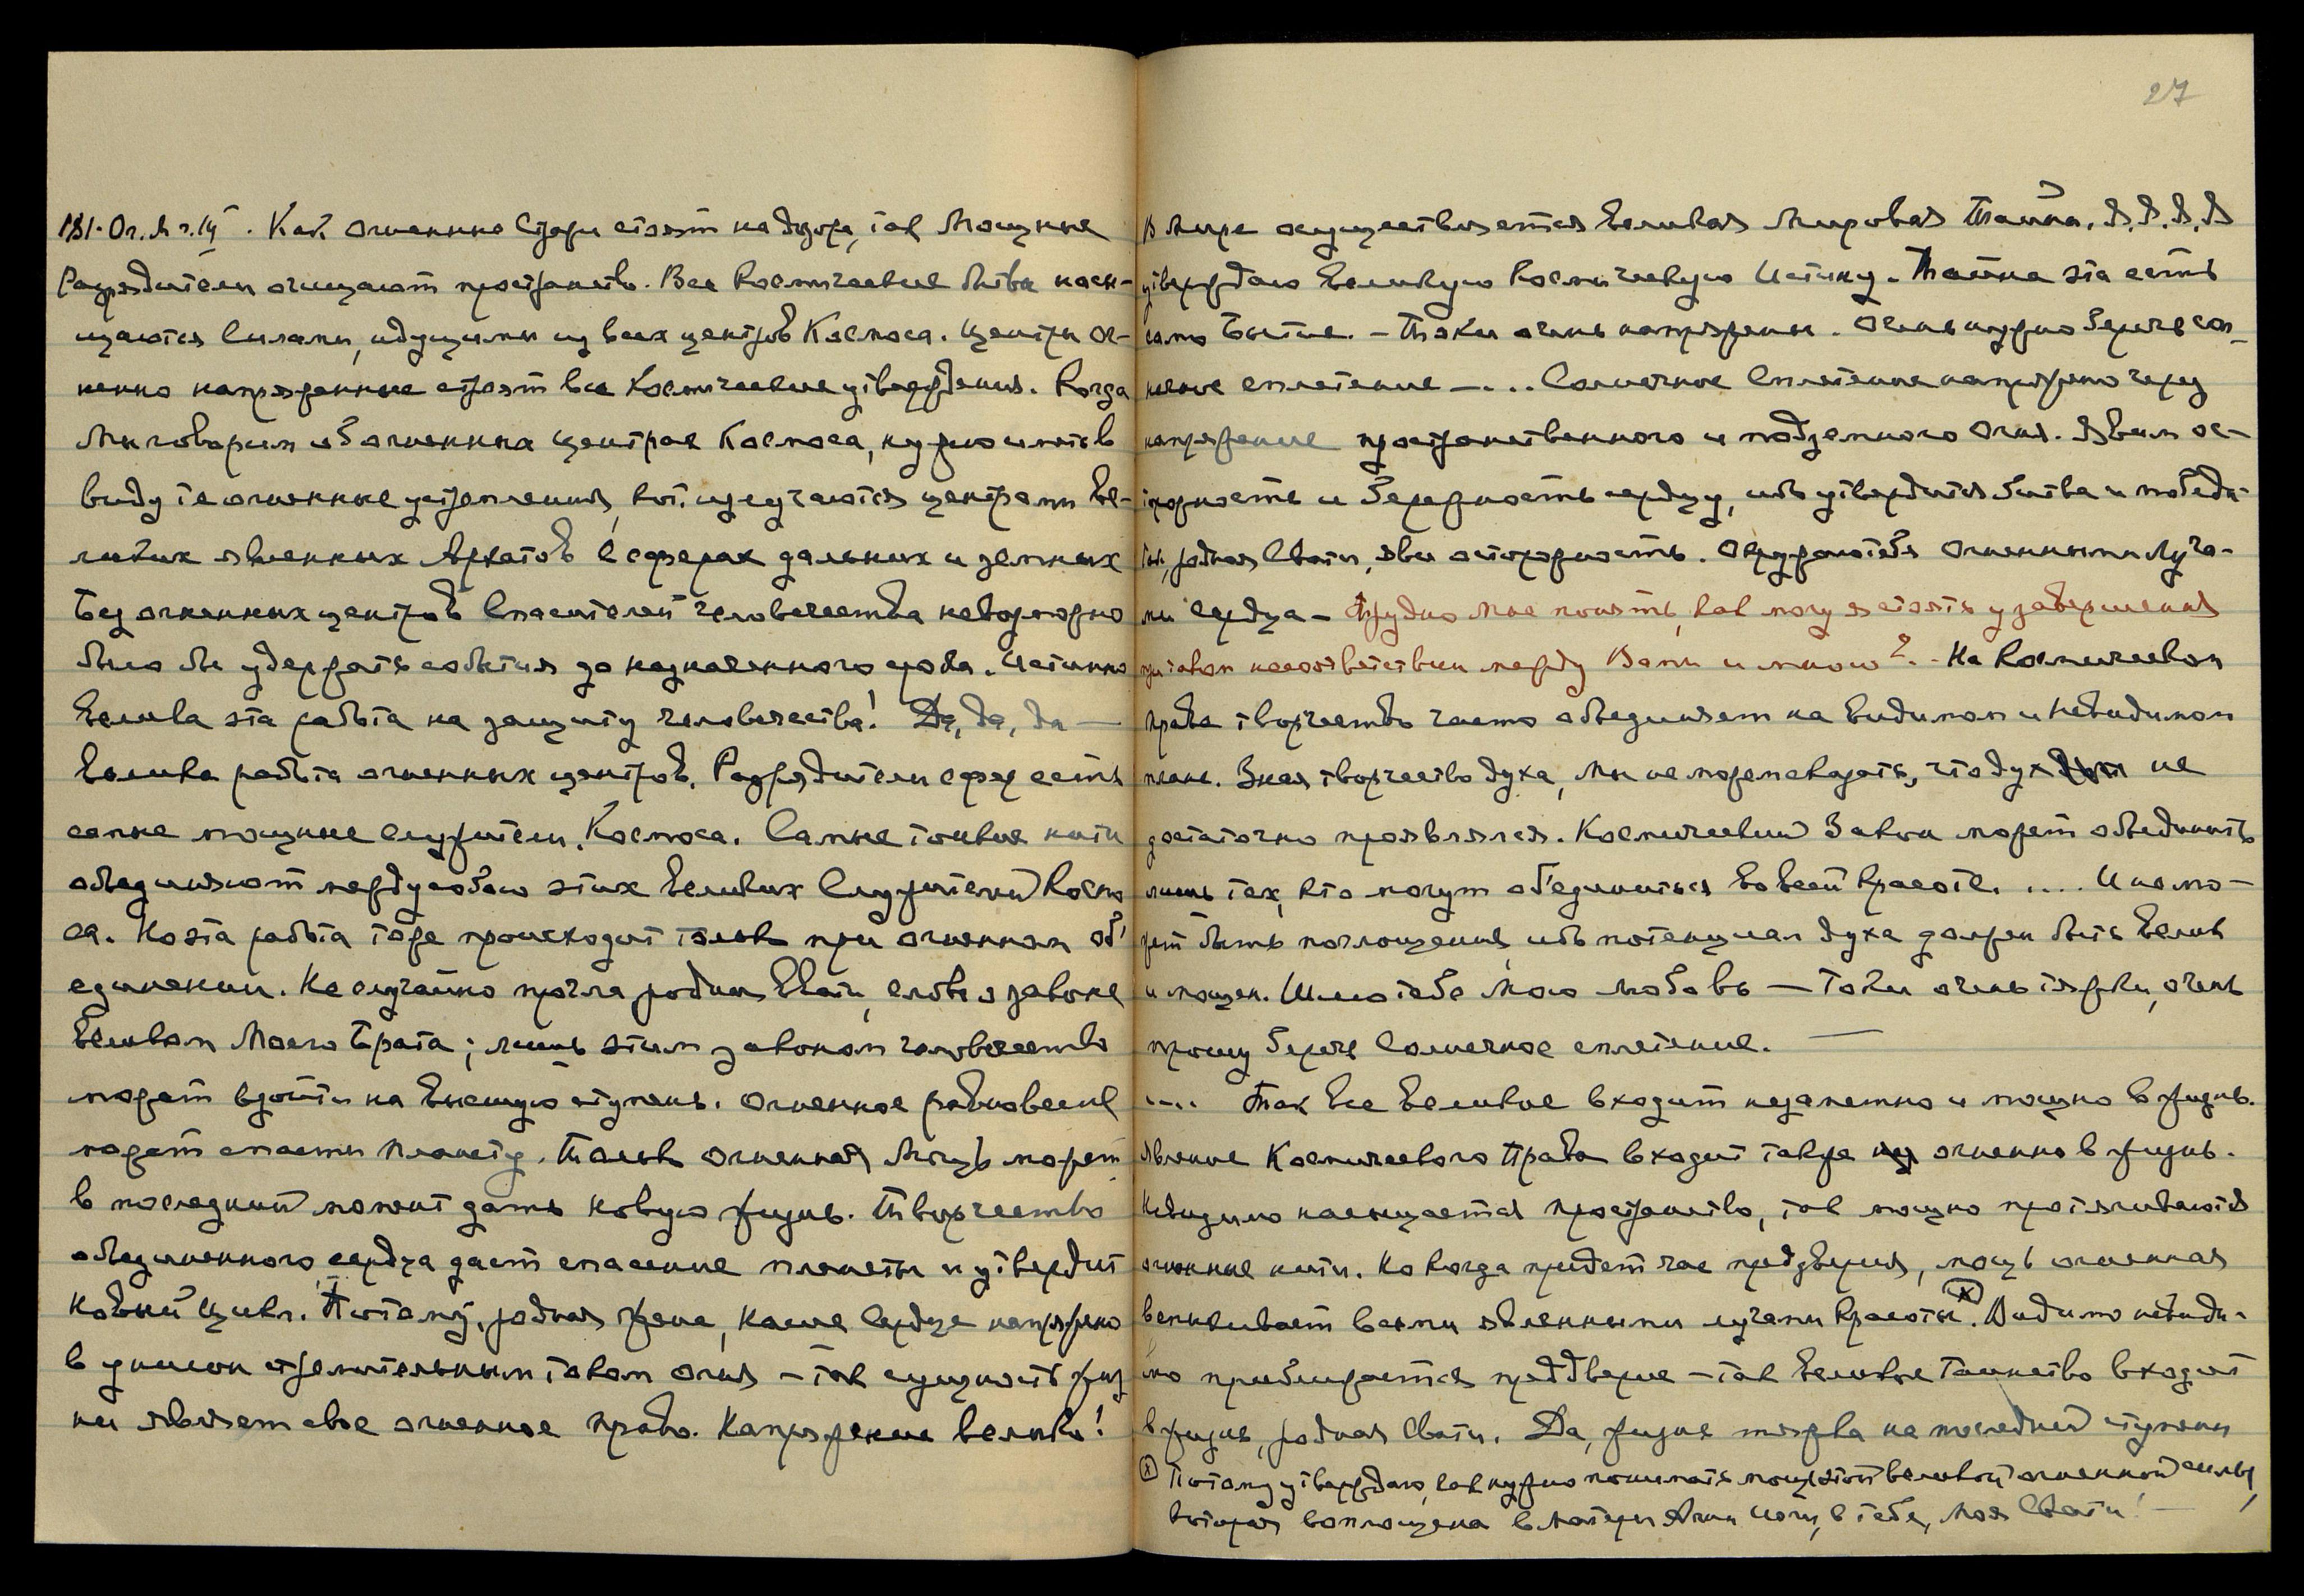 181. Ог. М. ч. III. Как огненные Стражи стоят на дозоре, так Мощные
Разрядители очищают пространство. Все Космические битвы насы-
щаются Силами, идущими из всех центров Космоса. Центры ог-
ненно напряженные строят все Космические утверждения. Когда
Мы говорим об огненных центрах Космоса, нужно иметь в
виду те огненные устремления, кот. излучаются центрами Ве-
ликих явленных Архатов в сферах дальних и земных
Без огненных центров Спасителей человечества невозможно
было бы удержать события до назначенного срока. Истинно
Велика эта работа на защиту человечества! Да, да, да —
Велика работа огненных центров. Разрядители сфер есть
самые мощные служители Космоса. Самые тонкие нити
объединяют между собою этих Великих Служителей Космо
са. Но эта работа тоже происходит только при огненном об'
единении. Не случайно прочла родная Свати, слова о законе
Великом Моего Брата; лишь этим законом человечество
может взойти на Высшую ступень. Огненное равновесие
может спасти планету. Только огненная Мощь может
в последний момент дать новую жизнь. Творчество
объединенного сердца дает спасение планеты и утвердит
новый цикл. Потому, родная жена, наше Сердце напряжено
в унисон стремительным током огня — так сущность жиз
ни являет свое огненное право. Напряжение велико!
27
В Мире осуществляется Великая Мировая Тайна. Я, Я, Я, Я
утверждаю Великую Космическую Истину. Тайна эта есть
само Бытие. — Токи очень напряжены. Очень нужно беречь сол
нечное сплетение —... Солнечное Сплетение напряжено через
напряжение пространственного и подземного Огня. Явим ос-
торожность и бережность сердцу, ибо утвердится битва и победа.
Ты, родная Свати, яви осторожность. Окружаю тебя Огненными Луча-
ми Сердца — Трудно мне понять, как могу я стоять у завершения
при таком несоответствии между Вами и мною? — На Космическом
праве творчество часто объединяет на Видимом и Невидимом
плане. Зная творчество духа, Мы не можем сказать, что дух не
достаточно проявлялся. Космический Закон может объединить
лишь тех, кто могут об'единиться во всей Красоте. .... И не мо-
жет быть поглощения, ибо потенциал духа должен быть Велик
и мощен. Шлю тебе Мою любовь — Токи очень тяжки, очень
прошу беречь Солнечное сплетение. —
.... Так все Великое входит незаметно и мощно в жизнь.
Явление Космического Права входит также огненно в жизнь.
Невидимо насыщается пространство, так мощно протягиваются
огненные нити. Но когда придет час преддверия, мощь огненная
вспыхивает всеми явленными лучами Красоты. (x) Видимо невиди-
мо приближается преддверие — так Великое Таинство входит
в жизнь, родная Свати. Да, жизнь тяжка на последней ступени
(x) Потому утверждаю, как нужно понимать мощь этой великой огненной силы,
которая воплощена в Матери Агни Йоги, в тебе, Моя Свати! —